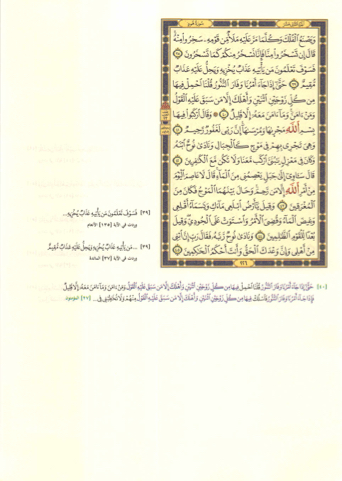 وَيَصْنَعُ ٱلْفُلْكَ وَكُلَّمَا مَرَّ عَلَيْهِ مَلَأٌ مِّن قَوْمِهِۦ سَخِرُوا۟ مِنْهُ
قَالَ إِن تَسْخَرُوا۟ مِنَّا فَإِنَّا نَسْخَرُ مِنكُمْ كَمَا تَسْخَرُونَ ٣٨
فَسَوْفَ تَعْلَمُونَ مَن يَأْتِيهِ عَذَابٌ يُخْزِيهِ وَيَحِلُّ عَلَيْهِ عَذَابٌ
مُّقِيمٌ ٣٩ حَتَّىٰٓ إِذَا جَآءَ أَمْرُنَا وَفَارَ ٱلتَّنُّورُ قُلْنَا ٱحْمِلْ فِيهَا
مِن كُلٍّ زَوْجَيْنِ ٱثْنَيْنِ وَأَهْلَكَ إِلَّا مَن سَبَقَ عَلَيْهِ ٱلْقَوْلُ
وَمَنْ ءَامَنَ وَمَآ ءَامَنَ مَعَهُۥٓ إِلَّا قَلِيلٌ ٤٠ وَقَالَ ٱرْكَبُوا۟ فِيهَا
بِسْمِ ٱللَّهِ مَجْر۪ىٰهَا وَمُرْسَىٰهَآ إِنَّ رَبِّى لَغَفُورٌ رَّحِيمٌ ٤١
وَهِىَ تَجْرِى بِهِمْ فِى مَوْجٍ كَٱلْجِبَالِ وَنَادَىٰ نُوحٌ ٱبْنَهُۥ
وَكَانَ فِى مَعْزِلٍ يَٰبُنَىَّ ٱرْكَب مَّعَنَا وَلَا تَكُن مَّعَ ٱلْكَٰفِرِينَ ٤٢
قَالَ سَـَٔاوِىٓ إِلَىٰ جَبَلٍ يَعْصِمُنِى مِنَ ٱلْمَآءِ قَالَ لَا عَاصِمَ ٱلْيَوْمَ
مِنْ أَمْرِ ٱللَّهِ إِلَّا مَن رَّحِمَ وَحَالَ بَيْنَهُمَا ٱلْمَوْجُ فَكَانَ مِنَ
ٱلْمُغْرَقِينَ ٤٣ وَقِيلَ يَٰٓأَرْضُ ٱبْلَعِى مَآءَكِ وَيَٰسَمَآءُ أَقْلِعِى
وَغِيضَ ٱلْمَآءُ وَقُضِىَ ٱلْأَمْرُ وَٱسْتَوَتْ عَلَى ٱلْجُودِىِّ وَقِيلَ
بُعْدًا لِّلْقَوْمِ ٱلظَّٰلِمِينَ ٤٤ وَنَادَىٰ نُوحٌ رَّبَّهُۥ فَقَالَ رَبِّ إِنَّ ٱبْنِى
مِنْ أَهْلِى وَإِنَّ وَعْدَكَ ٱلْحَقُّ وَأَنتَ أَحْكَمُ ٱلْحَٰكِمِينَ ٤٥
٢٢٦
[٣٩] فَسَوْفَ تَعْلَمُونَ مَن يَأْتِيهِ عَذَابٌ يُخْزِيهِ..
وردت في الآية [١٣٥] الأنعام
[٣٩] ...مَن يَأْتِيهِ عَذَابٌ يُخْزِيهِ وَيَحِلُّ عَلَيْهِ عَذَابٌ مُّقِيمٌ
وردت في الآية
[٤٠] حَتَّىٰٓ إِذَا جَآءَ أَمْرُنَا وَفَارَ ٱلتَّنُّورُ قُلْنَا ٱحْمِلْ فِيهَا مِن كُلٍّ زَوْجَيْنِ ٱثْنَيْنِ وَأَهْلَكَ إِلَّا مَن سَبَقَ عَلَيْهِ ٱلْقَوْلُ وَمَنْ ءَامَنَ وَمَآ ءَامَنَ مَعَهُۥٓ إِلَّا قَلِيلٌ
فَإِذَا جَآءَ أَمْرُنَا وَفَارَ ٱلتَّنُّورُ فَٱسْلُكْ فِيهَا مِن كُلٍّ زَوْجَيْنِ ٱثْنَيْنِ وَأَهْلَكَ إِلَّا مَن سَبَقَ عَلَيْهِ ٱلْقَوْلُ مِنْهُمْ وَلَا تُخَٰطِبْنِى فِى... [٢٧] المؤمنون